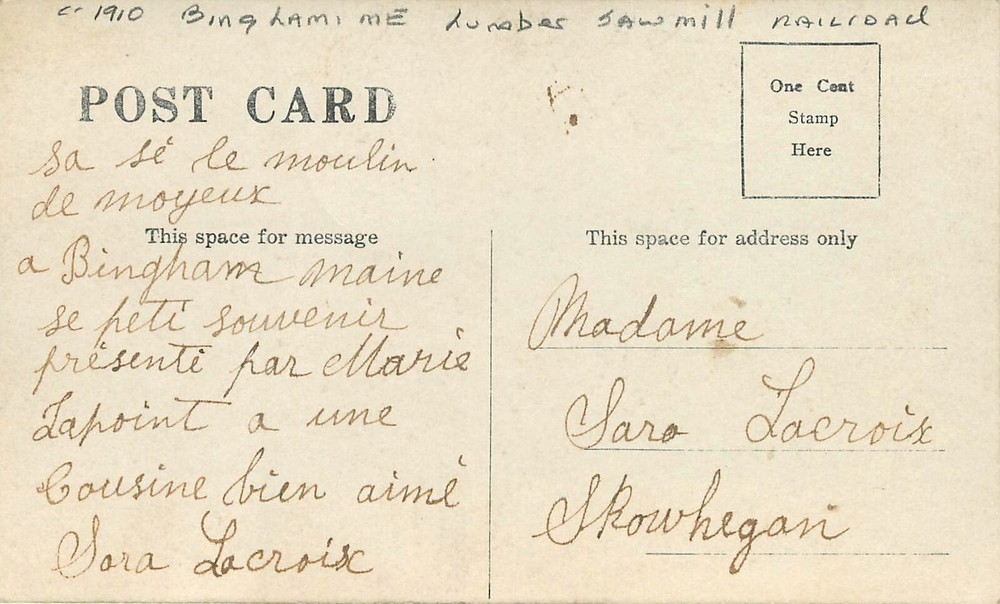 c 1910 Bingham ME Lumber Sawmill Railroad
POST CARD
One Cent
Stamp
Here
sa sé le moulin
de moyeux
This space for message
a Bingham maine
se peti souvenir
présenté par Marie
Lapoint a une
Cousine bien aimé
Sara Lacroix
This space for address only
Madame
Sara Lacroix
Skowhegan